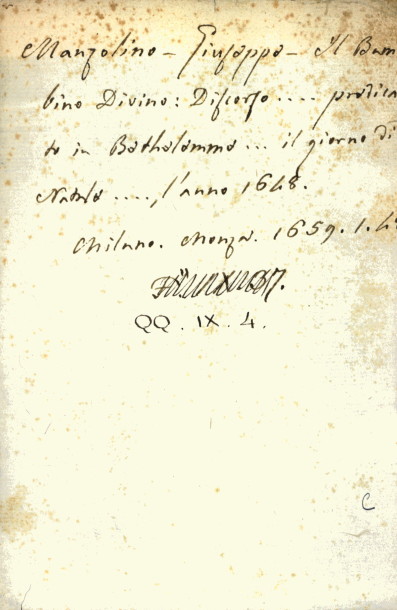 Manzolino - Giuseppe - Il Bam
bino Divino: Discorso .... predica
to in Bethelemme ... il giorno di
Natale ...., l'anno 1648.
Milano. Monza. 1659. 1. 4°
QQ. IX. 4.
C